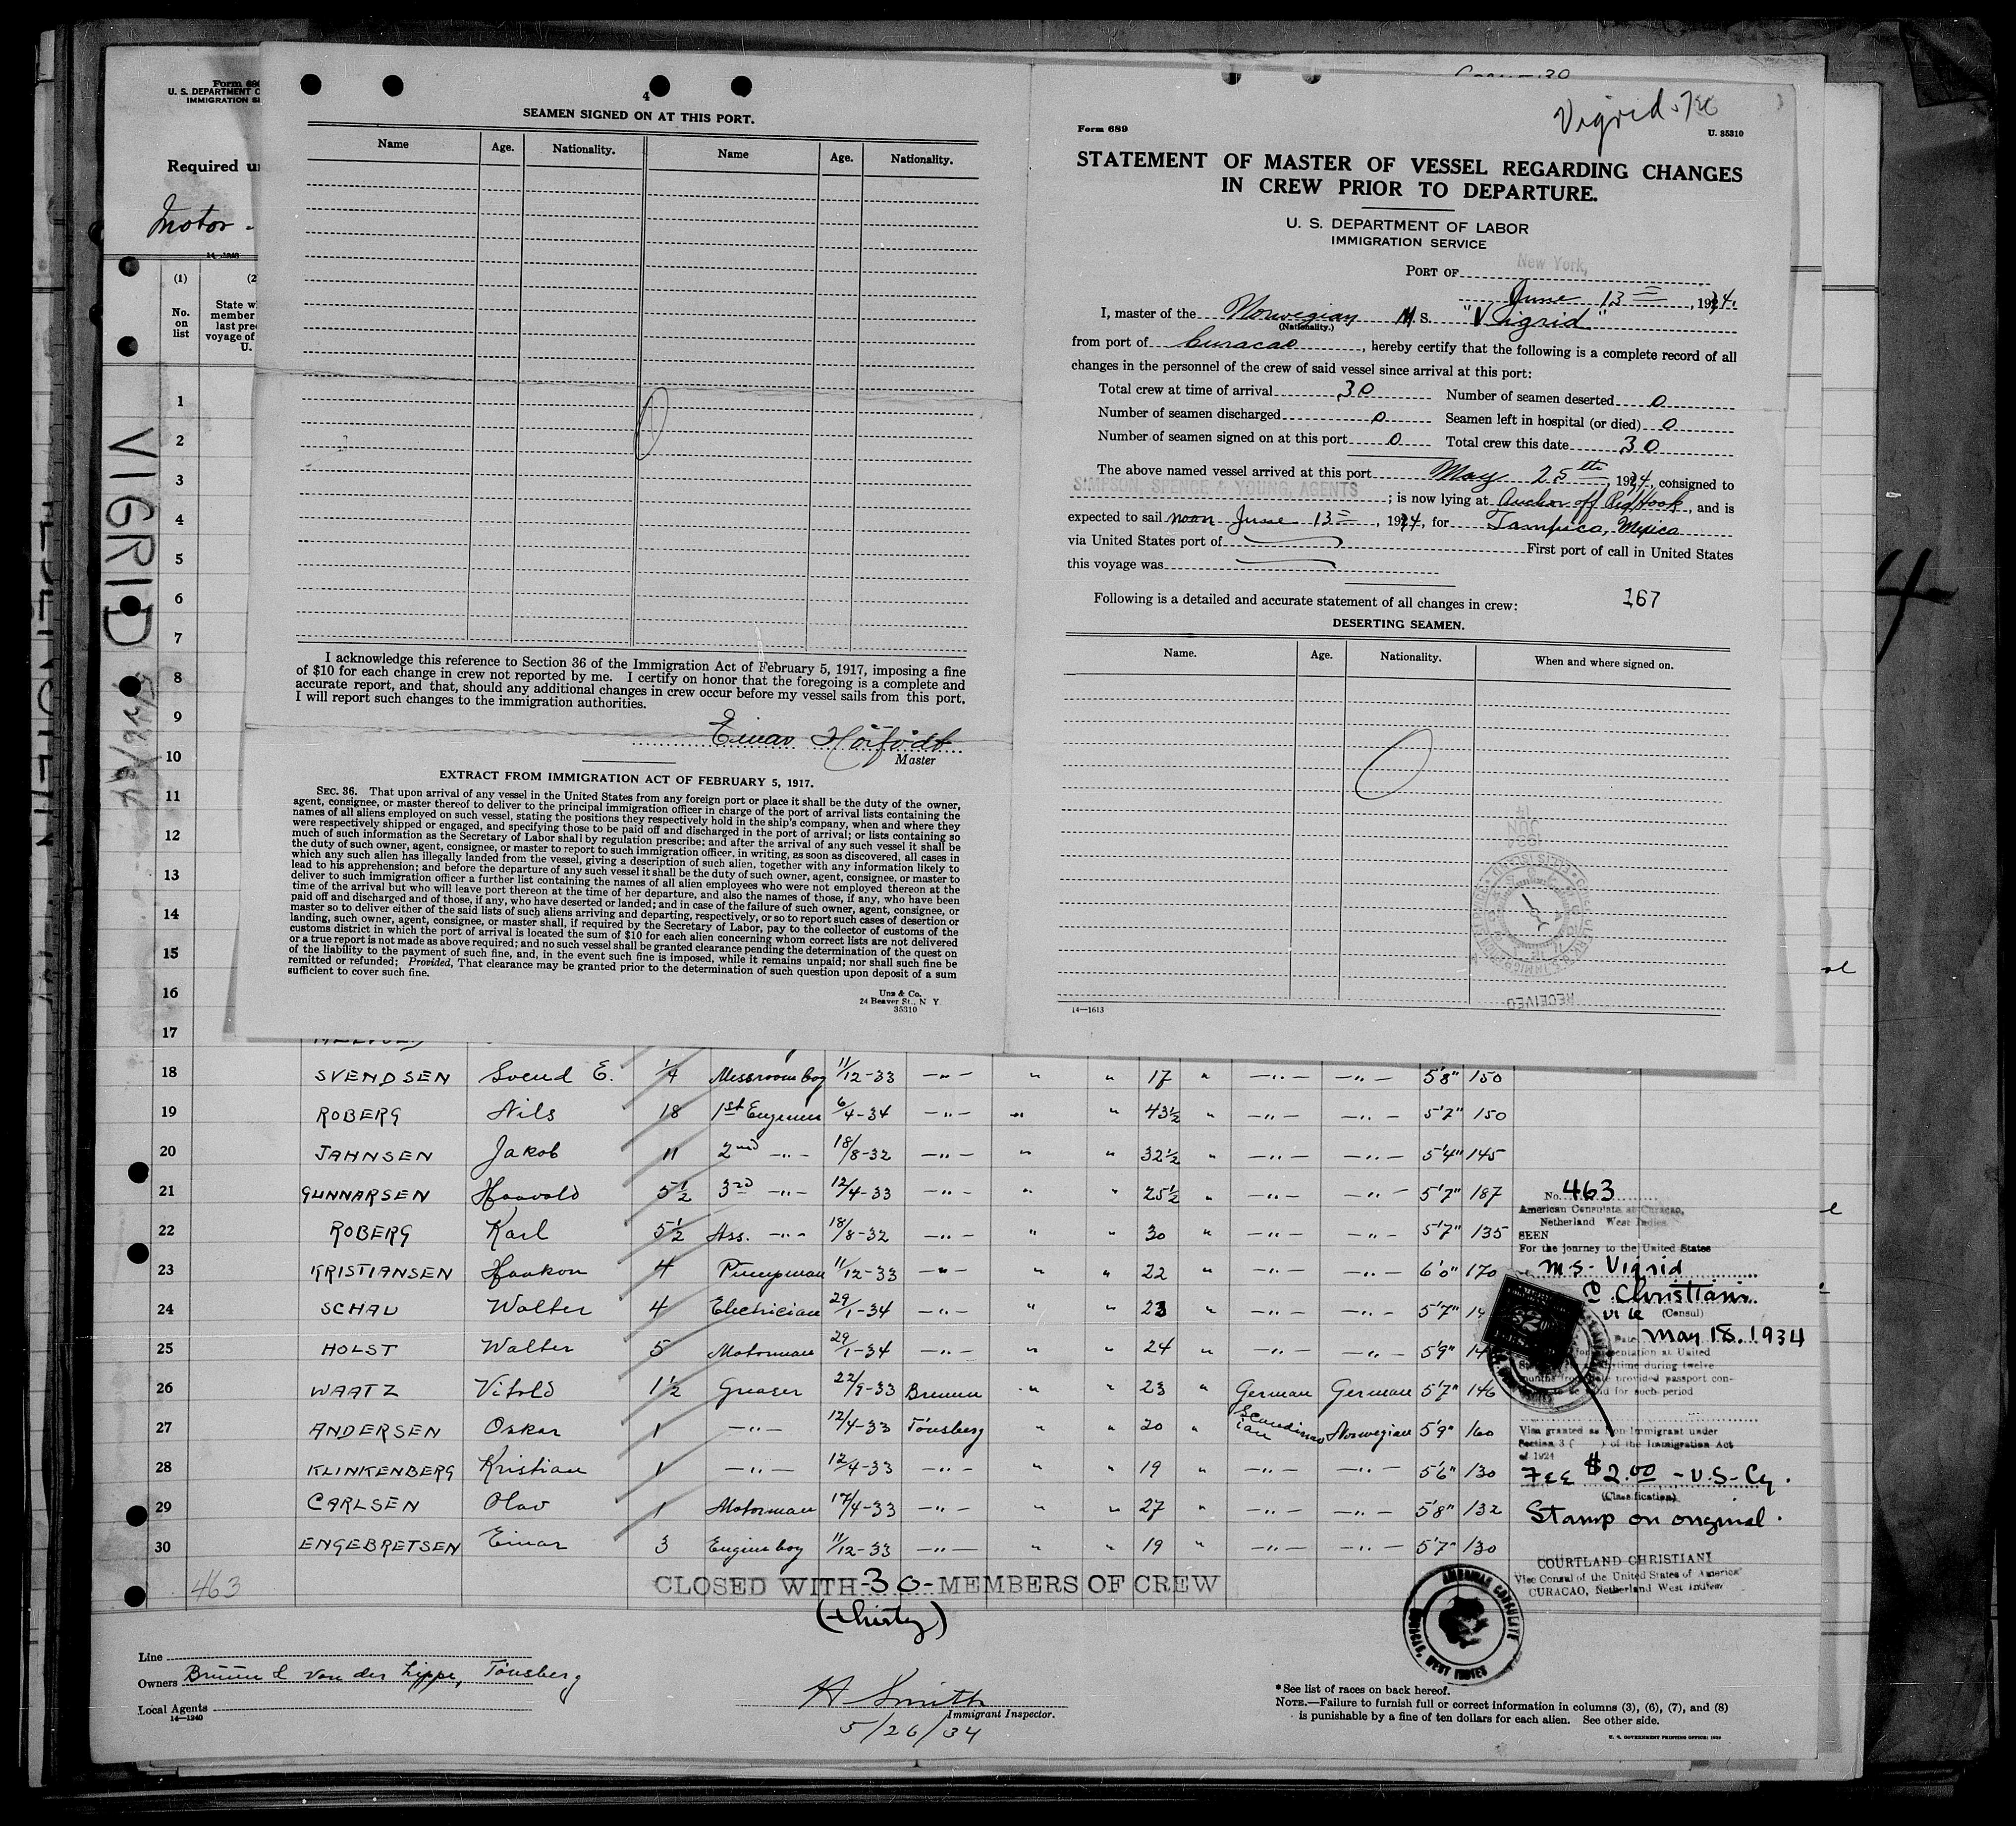 Form 689
U. S. DEPARTMENT O
IMMIGRATION S
Required u
Motor -
14-1240
(1)
(2
No.
on
list
State w
member
last pre
voyage of
U.
1
2
3
4
5
6
7
8
9
10
11
12
13
14
15
16
17
VIGRID
4
SEAMEN SIGNED ON AT THIS PORT.
Name Age. Nationality. Name Age. Nationality.
0
I acknowledge this reference to Section 36 of the Immigration Act of February 5, 1917, imposing a fine
of $10 for each change in crew not reported by me. I certify on honor that the foregoing is a complete and
accurate report, and that, should any additional changes in crew occur before my vessel sails from this port,
I will report such changes to the immigration authorities.
Einar
Master
EXTRACT FROM IMMIGRATION ACT OF FEBRUARY 5, 1917.
SEC. 36. That upon arrival of any vessel in the United States from any foreign port or place it shall be the duty of the owner,
agent, consignee, or master thereof to deliver to the principal immigration officer in charge of the port of arrival lists containing the
names of all aliens employed on such vessel, stating the positions they respectively hold in the ship's company, when and where they
were respectively shipped or engaged, and specifying those to be paid off and discharged in the port of arrival; or lists containing so
much of such information as the Secretary of Labor shall by regulation prescribe; and after the arrival of any such vessel it shall be
the duty of such owner, agent, consignee, or master to report to such immigration officer, in writing, as soon as discovered, all cases in
which any such alien has illegally landed from the vessel, giving a description of such alien, together with any information likely to
lead to his apprehension; and before the departure of any such vessel it shall be the duty of such owner, agent, consignee, or master to
deliver to such immigration officer a further list containing the names of all alien employees who were not employed thereon at the
time of the arrival but who will leave port thereon at the time of her departure, and also the names of those, if any, who have been
paid off and discharged and of those, if any, who have deserted or landed; and in case of the failure of such owner, agent, consignee, or
master so to deliver either of the said lists of such aliens arriving and departing, respectively, or so to report such cases of desertion or
landing, such owner, agent, consignee, or master shall, if required by the Secretary of Labor, pay to the collector of customs of the
customs district in which the port of arrival is located the sum of $10 for each alien concerning whom correct lists are not delivered
or a true report is not made as above required; and no such vessel shall be granted clearance pending the determination of the quest on
of the liability to the payment of such fine, and, in the event such fine is imposed, while it remains unpaid; nor shall such fine be
remitted or refunded; Provided, That clearance may be granted prior to the determination of such question upon deposit of a sum
sufficient to cover such fine.
Unz & Co.
24 Beaver St., N Y.
35310
Vigrid
Form 689
U. 35310
STATEMENT OF MASTER OF VESSEL REGARDING CHANGES
IN CREW PRIOR TO DEPARTURE.
U. S. DEPARTMENT OF LABOR
IMMIGRATION SERVICE
PORT OF New York,
June 13, 1934.
I, master of the Norwegian M. S. "Vigrid"
(Nationality.)
from port of Curacao, hereby certify that the following is a complete record of all
changes in the personnel of the crew of said vessel since arrival at this port:
Total crew at time of arrival 30 Number of seamen deserted 0
Number of seamen discharged 0 Seamen left in hospital (or died) 0
Number of seamen signed on at this port 0 Total crew this date 30
The above named vessel arrived at this port May 25th, 1934, consigned to
SIMPSON, SPENCE & YOUNG, AGENTS; is now lying at Anchor off Red Hook, and is
expected to sail noon June 13, 1934, for Tampico, Mexico
via United States port of First port of call in United States
this voyage was
Following is a detailed and accurate statement of all changes in crew: 167
DESERTING SEAMEN.
Name. Age. Nationality. When and where signed on.
0
14 JUN 1934
RECEIVED
14-1613
18 SVENDSEN Svend E. 1/4 Messroom boy 11/12-33 -"- " " 17 " -"- -"- 5'8" 150
19 ROBERG Nils 18 1st Engineer 6/4-34 -"- " " 43½ " -"- -"- 5'7" 150
20 JAHNSEN Jakob 11 2nd -"- 18/8-32 -"- " " 32½ " -"- -"- 5'4" 145
21 GUNNARSEN Haavald 5½ 3rd -"- 12/4-33 -"- " " 25½ " -"- -"- 5'7" 187
22 ROBERG Karl 5½ Ass. -"- 18/8-32 -"- " " 30 " -"- -"- 5'7" 135
23 KRISTIANSEN Haakon 4 Pumpman 11/12-33 -"- " " 22 " -"- -"- 6'0" 170
24 SCHAU Walter 4 Electrician 29/1-34 -"- " " 23 " -"- -"- 5'7" 14
25 HOLST Walter 5 Motorman 29/1-34 -"- " " 24 " -"- -"- 5'9" 14
26 WAATZ Vitold 1½ Greaser 22/9-33 Bremen " " 23 " German German 5'7" 146
27 ANDERSEN Oskar 1 -"- 12/4-33 Tönsberg " " 20 " Scandinavian Norwegian 5'9" 160
28 KLINKENBERG Kristian 1 -"- 12/4-33 -"- " " 19 " -"- -"- 5'6" 130
29 CARLSEN Olav 1 Motorman 17/4-33 -"- " " 27 " -"- -"- 5'8" 132
30 ENGEBRETSEN Einar 3 Engine boy 11/12-33 -"- " " 19 " -"- -"- 5'7" 130
463
CLOSED WITH -30- MEMBERS OF CREW
(thirty)
No. 463
American Consulate at Curacao,
Netherland West Indies
SEEN
For the journey to the United States
M.S. Vigrid
Christiani
vice (Consul)
Date May 18, 1934
Visa granted as Non-Immigrant under
Section 3 ( ) of the Immigration Act
of 1924
Fee $2.00 - U.S. Cy.
(Classification)
Stamp on original.
COURTLAND CHRISTIANI
Vice Consul of the United States of America
CURACAO, Netherland West Indies
AMERICAN CONSULATE
CURACAO, WEST INDIES
Line
Owners Bruun & von der Lippe, Tönsberg
Local Agents
14-1240
H Smith
Immigrant Inspector.
5/26/34
*See list of races on back hereof.
NOTE.—Failure to furnish full or correct information in columns (3), (6), (7), and (8)
is punishable by a fine of ten dollars for each alien. See other side.
U. S. GOVERNMENT PRINTING OFFICE: 1929